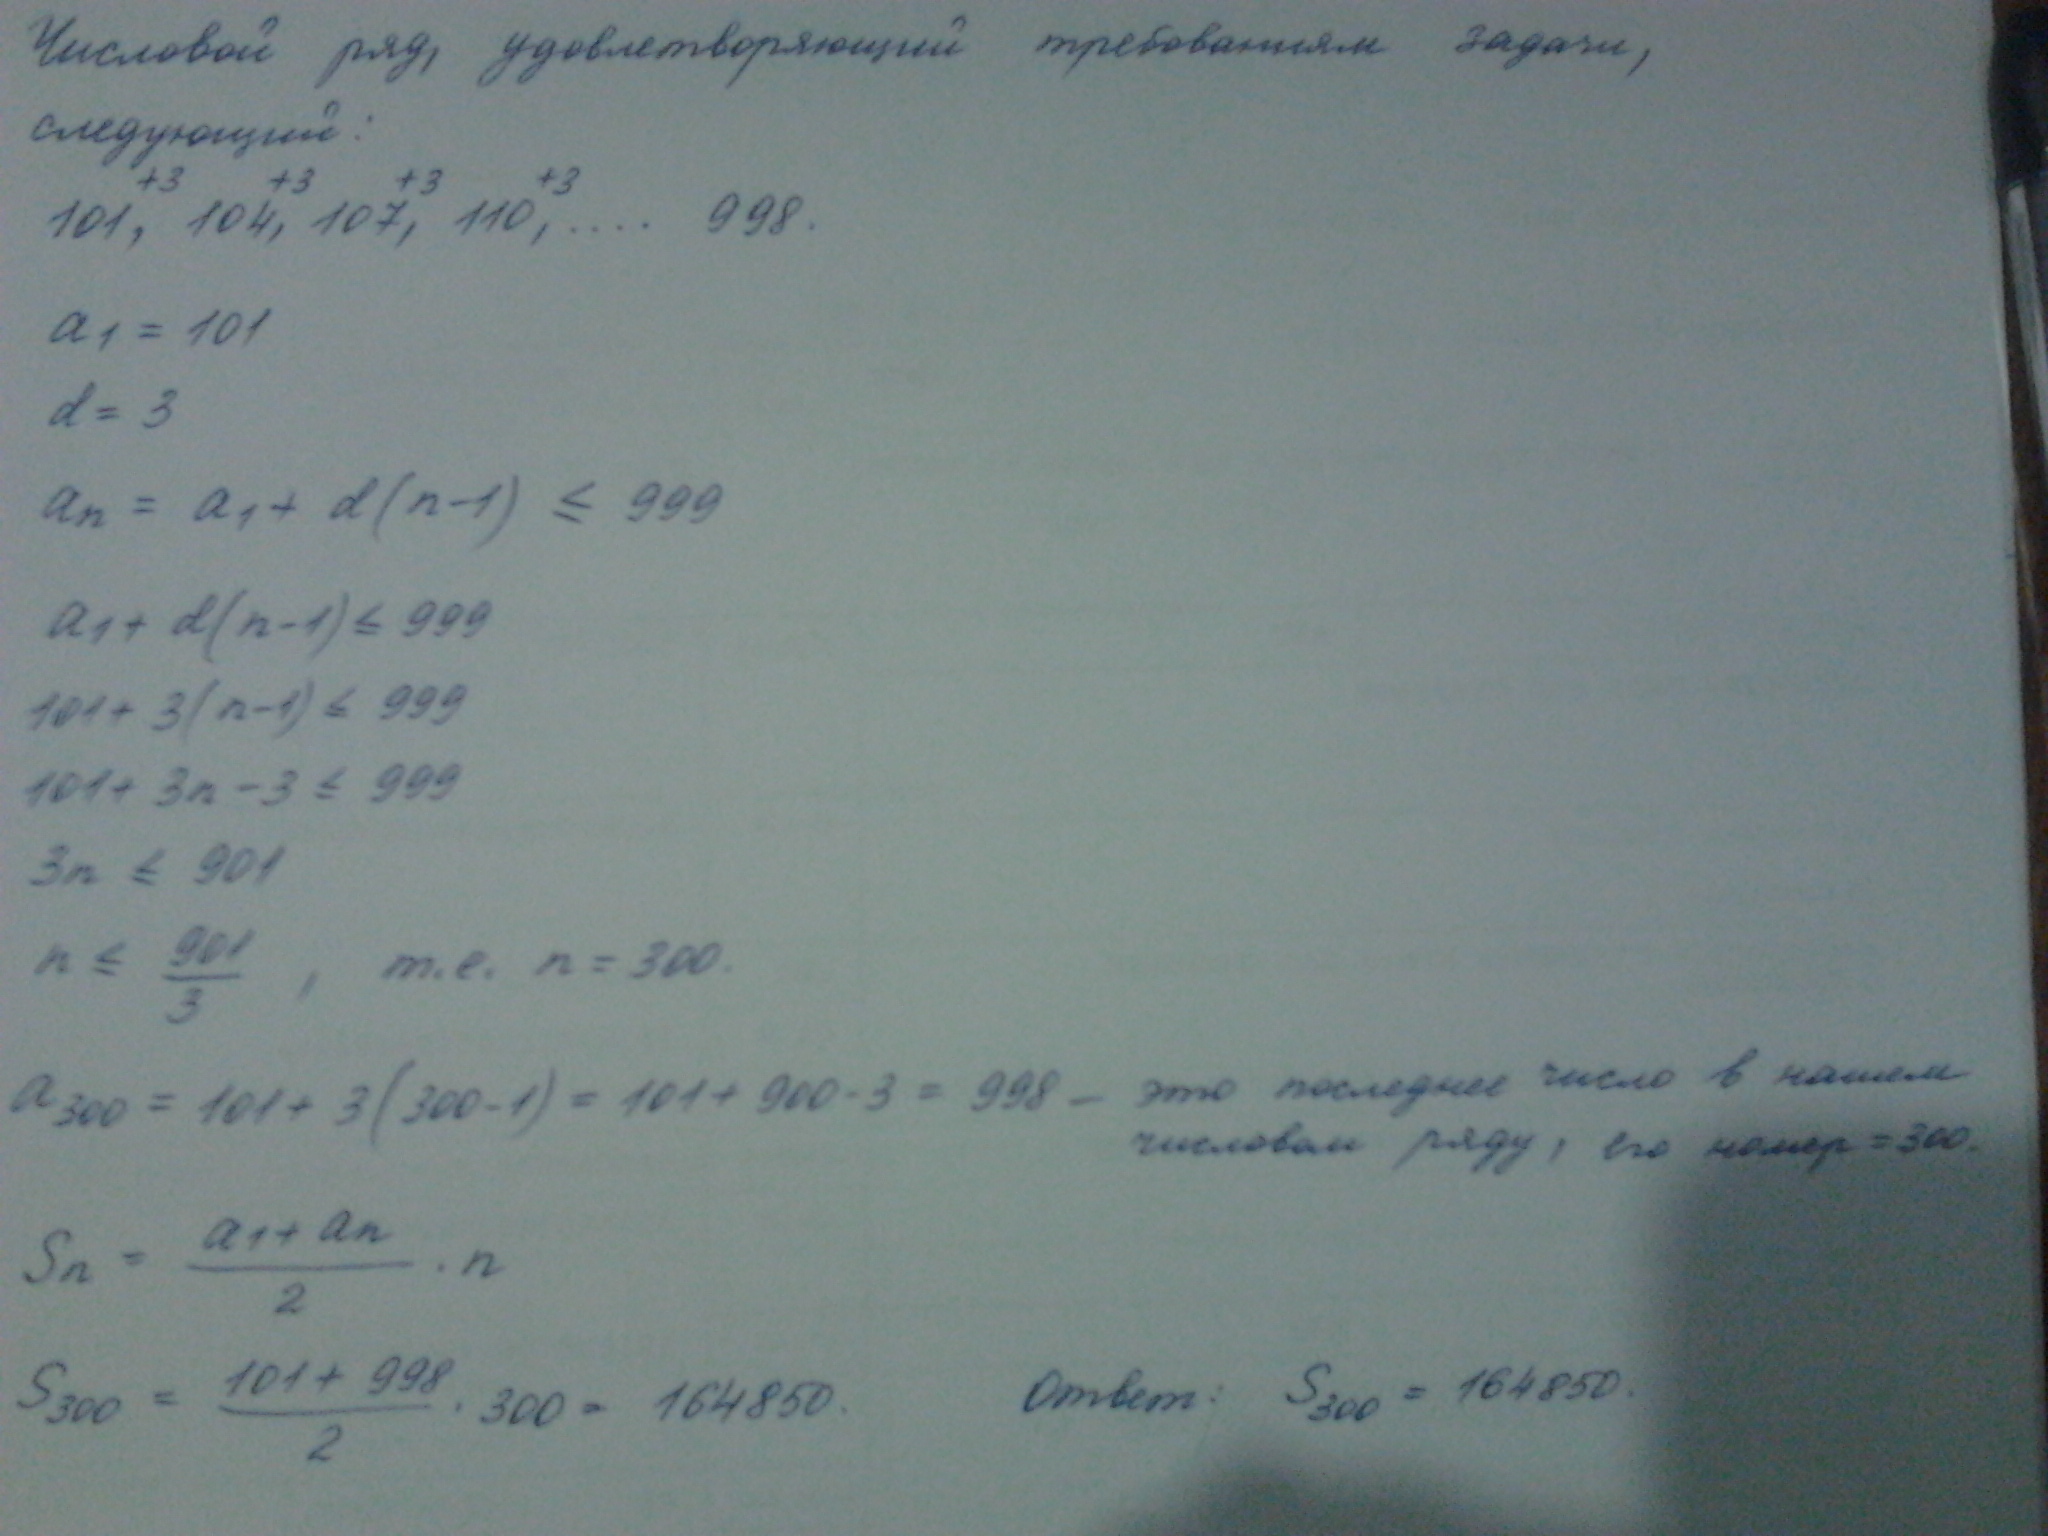 Числовой ряд, удовлетворяющий требованиям задачи,
следующий:
+3 +3 +3 +3
101, 104, 107, 110, .... 998.
a₁ = 101
d = 3
aₙ = a₁ + d(n-1) ≤ 999
a₁ + d(n-1) ≤ 999
101 + 3(n-1) ≤ 999
101 + 3n - 3 ≤ 999
3n ≤ 901
n ≤ 901/3, т.е. n = 300.
a₃₀₀ = 101 + 3(300-1) = 101 + 900 - 3 = 998 – это последнее число в нашем
числовом ряду, его номер = 300.
Sₙ = (a₁ + aₙ)/2 · n
S₃₀₀ = (101 + 998)/2 · 300 = 164850. Ответ: S₃₀₀ = 164850.